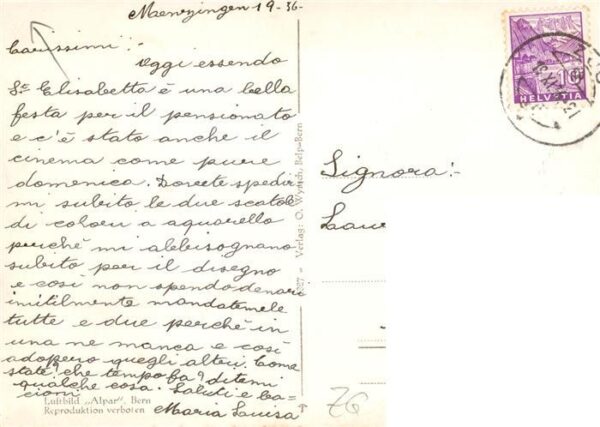 Menzingen 19-36-
Carissimi:-
Oggi essendo
Sta Elisabetta è una bella
festa per il pensionato
e c'è stato anche il
cinema come pure
domenica. Dovete spedir
mi subito le due scatole
di colori a aquarello
perchè mi abbisognano
subito per il disegno
e così non spendo denari
inutilmente mandatemele
tutte e due perchè in
una ne manca e così
adopero quegli altri. Come
state? che tempo fa? ditemi
qualche cosa. Saluti e ba-
cioni
Maria Luisa
Luftbild „Alpar", Bern
Reproduktion verboten
Verlag: O. Wyrsch, Belp-Bern
Signora:-
HELVETIA
10
ZUG
ZG